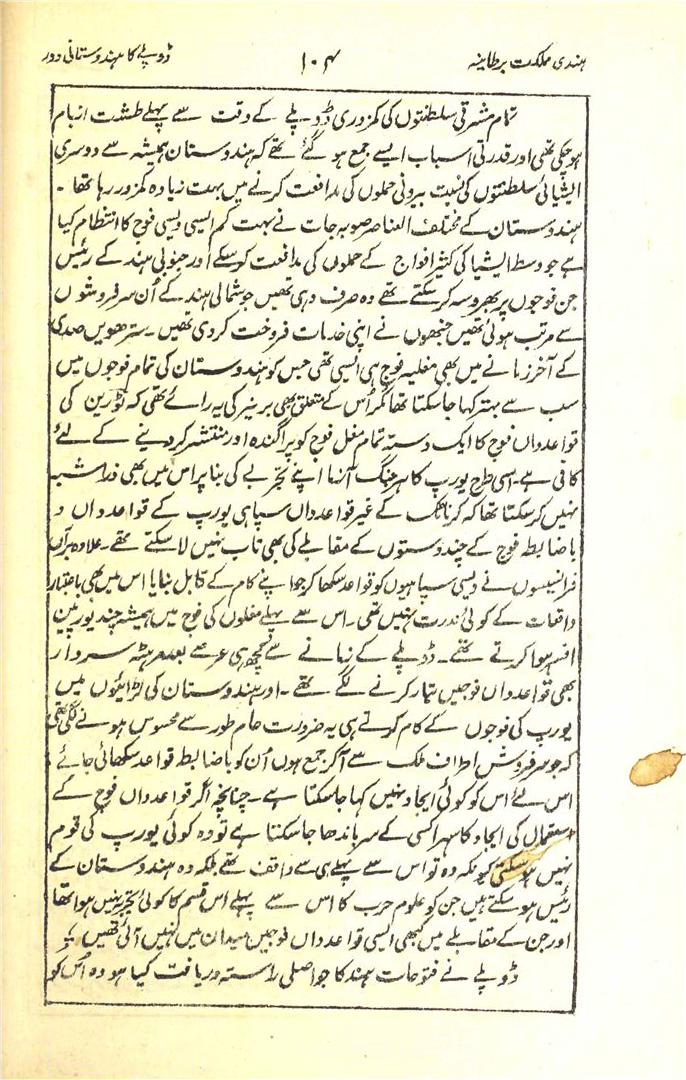 ہندی مملکت برطانیہ ۱۰۴ ڈوپلے کا ہندوستانی دور
تمام مشرقی سلطنتوں کی کمزوری ڈوپلے کے وقت سے پہلے طشت ازبام
ہوچکی تھی اور قدرتی اسباب ایسے جمع ہوگئے تھے کہ ہندوستان ہمیشہ سے دوسری
ایشیائی سلطنتوں کی نسبت بیرونی حملوں کی مدافعت کرنے میں بہت زیادہ کمزور رہا تھا ۔
ہندوستان کے مختلف العناصر صوبہ جات نے بہت کم ایسی دیسی فوج کا انتظام کیا
ہے جو وسط ایشیا کی کثیر افواج کے حملوں کی مدافعت کرسکے اور جنوبی ہند کے رئیس
جن فوجوں پر بھروسہ کرسکتے تھے وہ صرف وہی تھیں جو شمالی ہند کے اُن سرفروشوں
سے مرتب ہوئی تھیں جنھوں نے اپنی خدمات فروخت کردی تھیں ۔ سترھویں صدی
کے آخر زمانے میں بھی مغلیہ فوج ہی ایسی تھی جس کو ہندوستان کی تمام فوجوں میں
سب سے بہتر کہا جاسکتا تھا مگر اُس کے متعلق بھی برنیر کی یہ رائے تھی کہ تورین کی
قواعد داں فوج کا ایک دستہ تمام مغل فوج کو پراگندہ اور منتشر کردینے کے لئے
کافی ہے ۔ اسی طرح یورپ کا ہر جنگ آزما اپنے تجربے کی بنا پر اس میں بھی ذرا شبہ
نہیں کرسکتا تھا کہ کرناٹک کے غیر قواعد داں سپاہی یورپ کے قواعد داں و
باضابطہ فوج کے چند دستوں کے مقابلے کی بھی تاب نہیں لاسکتے تھے ۔ علاوہ برآں
فرانسیسوں نے دیسی سپاہیوں کو قواعد سکھا کر جو اپنے کام کے قابل بنایا اس میں بھی باعتبار
واقعات کے کوئی ندرت نہیں تھی ۔ اس سے پہلے مغلوں کی فوج میں ہمیشہ چند یورپین
افسر ہوا کرتے تھے ۔ ڈوپلے کے زمانے سے کچھ ہی عرصے بعد مرہٹہ سردار
بھی قواعد داں فوجیں تیار کرنے لگے تھے ۔ اور ہندوستان کی لڑائیوں میں
یورپ کی فوجوں کے کام کرتے ہی یہ ضرورت عام طور سے محسوس ہونے لگی تھی
کہ جو سرفروش اطراف ملک سے آکر جمع ہوں اُن کو باضابطہ قواعد سکھائی جائے ؛
اس لئے اس کو کوئی ایجاد نہیں کہا جاسکتا ہے ۔ چنانچہ اگر قواعد داں فوج کے
استعمال کی ایجاد کا سہرا کسی کے سر باندھا جاسکتا ہے تو وہ کوئی یورپ کی قوم
نہیں ہوسکتی کیونکہ وہ تو اس سے پہلے ہی سے واقف تھے بلکہ وہ ہندوستان کے
رئیس ہوسکتے ہیں جن کو علوم حرب کا اس سے پہلے اس قسم کا کوئی تجربہ نہیں ہوا تھا
اور جن کے مقابلے میں کبھی ایسی قواعد داں فوجیں میدان میں نہیں آئی تھیں ؛
ڈوپلے نے فتوحات ہند کا جو اصلی راستہ دریافت کیا ہو وہ اُس کو